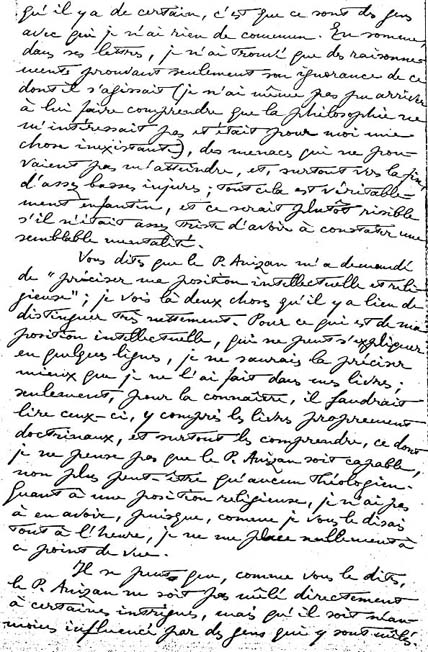 qu'il y a de certain, c'est que ce sont des gens
avec qui je n'ai rien de commun. En somme,
dans ses lettres, je n'ai trouvé que des raisonne-
ments prouvant seulement son ignorance de ce
dont il s'agissait (je n'ai même pas pu arriver
à lui faire comprendre que la philosophie ne
m'intéressait pas et était pour moi une
chose inexistante), des menaces qui ne pou-
vaient pas m'atteindre, et, surtout vers la fin,
d'assez basses injures ; tout cela est véritable-
ment enfantin, et ce serait plutôt risible
s'il n'était assez triste d'avoir à constater une
semblable mentalité.
Vous dites que le P. Anizan m'a demandé
de "préciser ma position intellectuelle et reli-
gieuse" ; je vois là deux choses qu'il y a lieu de
distinguer très nettement. Pour ce qui est de ma
position intellectuelle, qui ne peut s'expliquer
en quelques lignes, je ne saurais la préciser
mieux que je ne l'ai fait dans mes livres ;
seulement, pour la connaître, il faudrait
lire ceux-ci, y compris les livres proprement
doctrinaux, et surtout les comprendre, ce dont
je ne pense pas que le P. Anizan soit capable,
non plus peut-être qu'aucun théologien.
Quant à une position religieuse, je n'ai pas
à en avoir, puisque, comme je vous le disais
tout à l'heure, je ne me place nullement à
ce point de vue.
Il se peut que, comme vous le dites,
le P. Anizan ne soit pas mêlé directement
à certaines intrigues, mais qu'il soit néan-
moins influencé par des gens qui y sont mêlés.